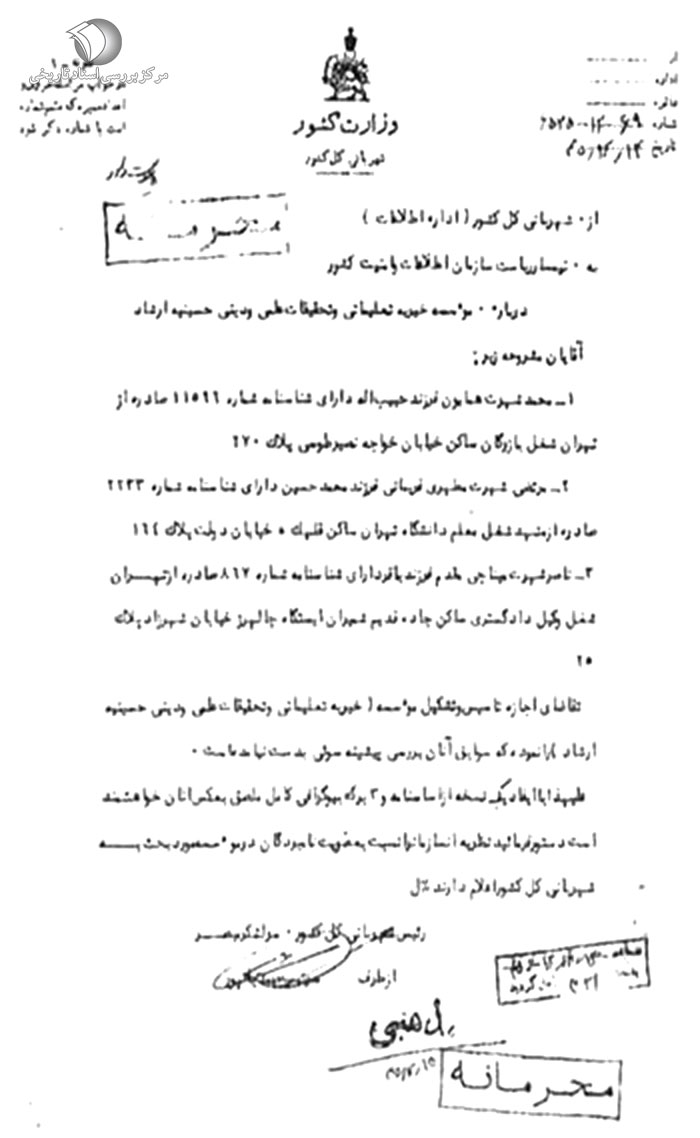 مرکز بررسی اسناد تاریخی
وزارت کشور
شهربانی کل کشور
از
اداره
دائره
شماره
تاریخ ۴۵/۴/۱۴
در جواب
است با شماره ذکر شود
محرمانه
از : شهربانی کل کشور ( اداره اطلاعات )
به : تیمسار ریاست سازمان اطلاعات و امنیت کشور
درباره : موسسه خیریه تعلیماتی و تحقیقات علمی و دینی حسینیه ارشاد
آقایان مشروحه زیر :
۱ـ محمد شهرت همایون فرزند حبیب اله دارای شناسنامه شماره ۱۱۵۶۶ صادره از
تهران شغل بازرگان ساکن خیابان خواجه نصیر طوسی پلاک ۲۷۰
۲ـ مرتضی شهرت مطهری فریمانی فرزند محمد حسین دارای شناسنامه شماره ۲۲۳۳
صادره از مشهد شغل معلم دانشگاه تهران ساکن قلهک ، خیابان دولت پلاک ۱۶۴
۳ـ ناصر شهرت میناچی مقدم فرزند باقر دارای شناسنامه شماره ۸۶۷ صادره از تهــران
شغل وکیل دادگستری ساکن جاده قدیم شمیران ایستگاه چالهرز خیابان شهرزاد پلاک
۲۵
تقاضای اجازه تاسیس و تشکیل موسسه ( خیریه تعلیماتی و تحقیقات علمی و دینی حسینیه
ارشاد ) را نموده که سوابق آنان بررسی پیشینه سوئی بدست نیامده است .
علیهذا با ایفاد یک نسخه از اساسنامه و ۳ برگ بیوگرافی کامل ملصق بعکس آنان خواهشمند
است دستور فرمائید نظریه آنسازمانرا نسبت به عضویت نامبردگان در موسسه مورد بحث بـــه
شهربانی کل کشور اعلام دارند
رئیس شهربانی کل کشور . سرلشگر مبصــر
از طرف
محرمانه